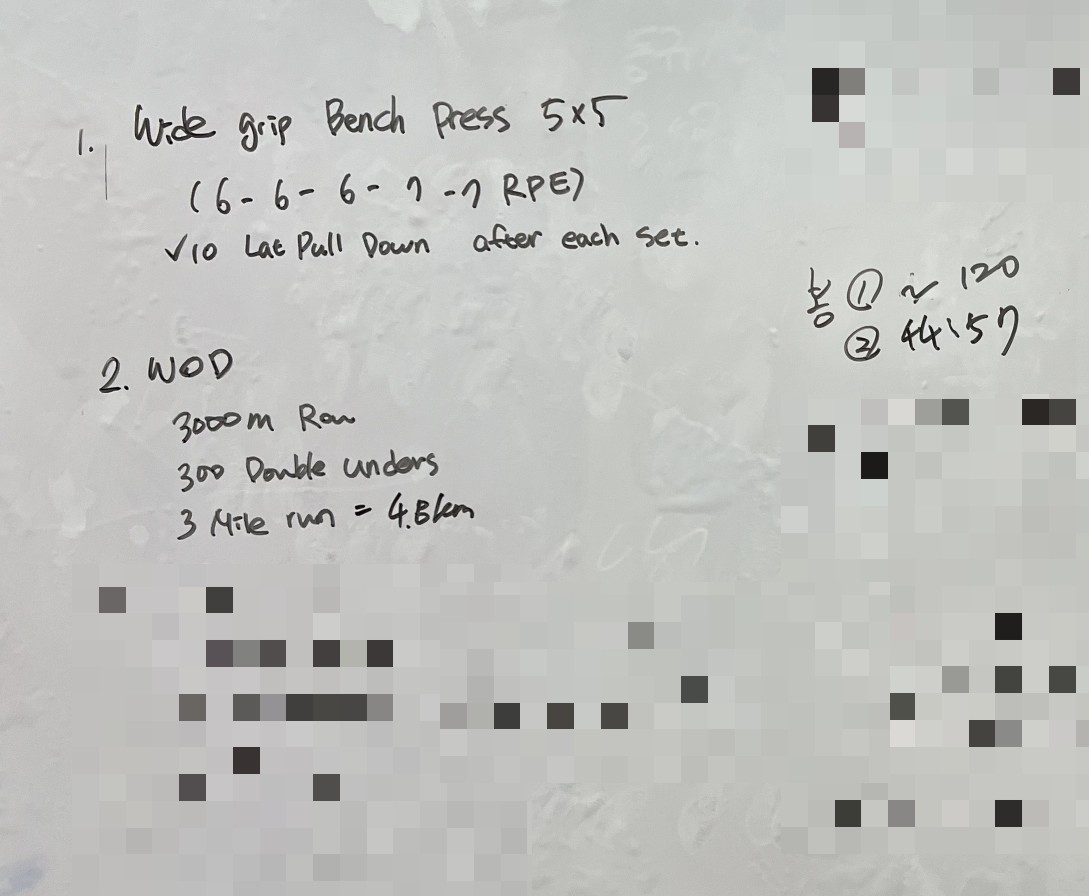 1. Wide grip Bench Press 5x5
(6-6-6-7-7 RPE)
√10 Lat Pull Down after each set.
2. WOD
3000m Row
300 Double unders
3 Mile run = 4.8km
봉 ① ~ 120
② 44:57